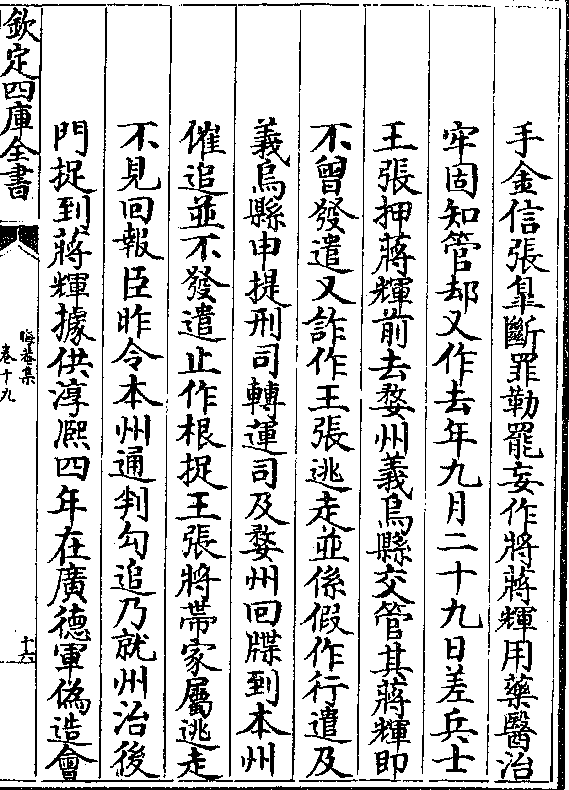 手金信張臯斷罪勒罷妄作將蔣輝用藥醫治
牢固知管却又作去年九月二十九日差兵士
王張押蔣輝前去婺州義烏縣交管其蔣輝即
不曾發遣又詐作王張逃走並係假作行遣及
義烏縣申提刑司轉運司及婺州回牒到本州
催追並不發遣止作根捉王張將帶家屬逃走
不見回報臣昨令本州通判勾追乃就州治後
門捉到蔣輝據供淳熈四年在廣德軍偽造會
欽定四庫全書
晦菴集
卷十九
十六